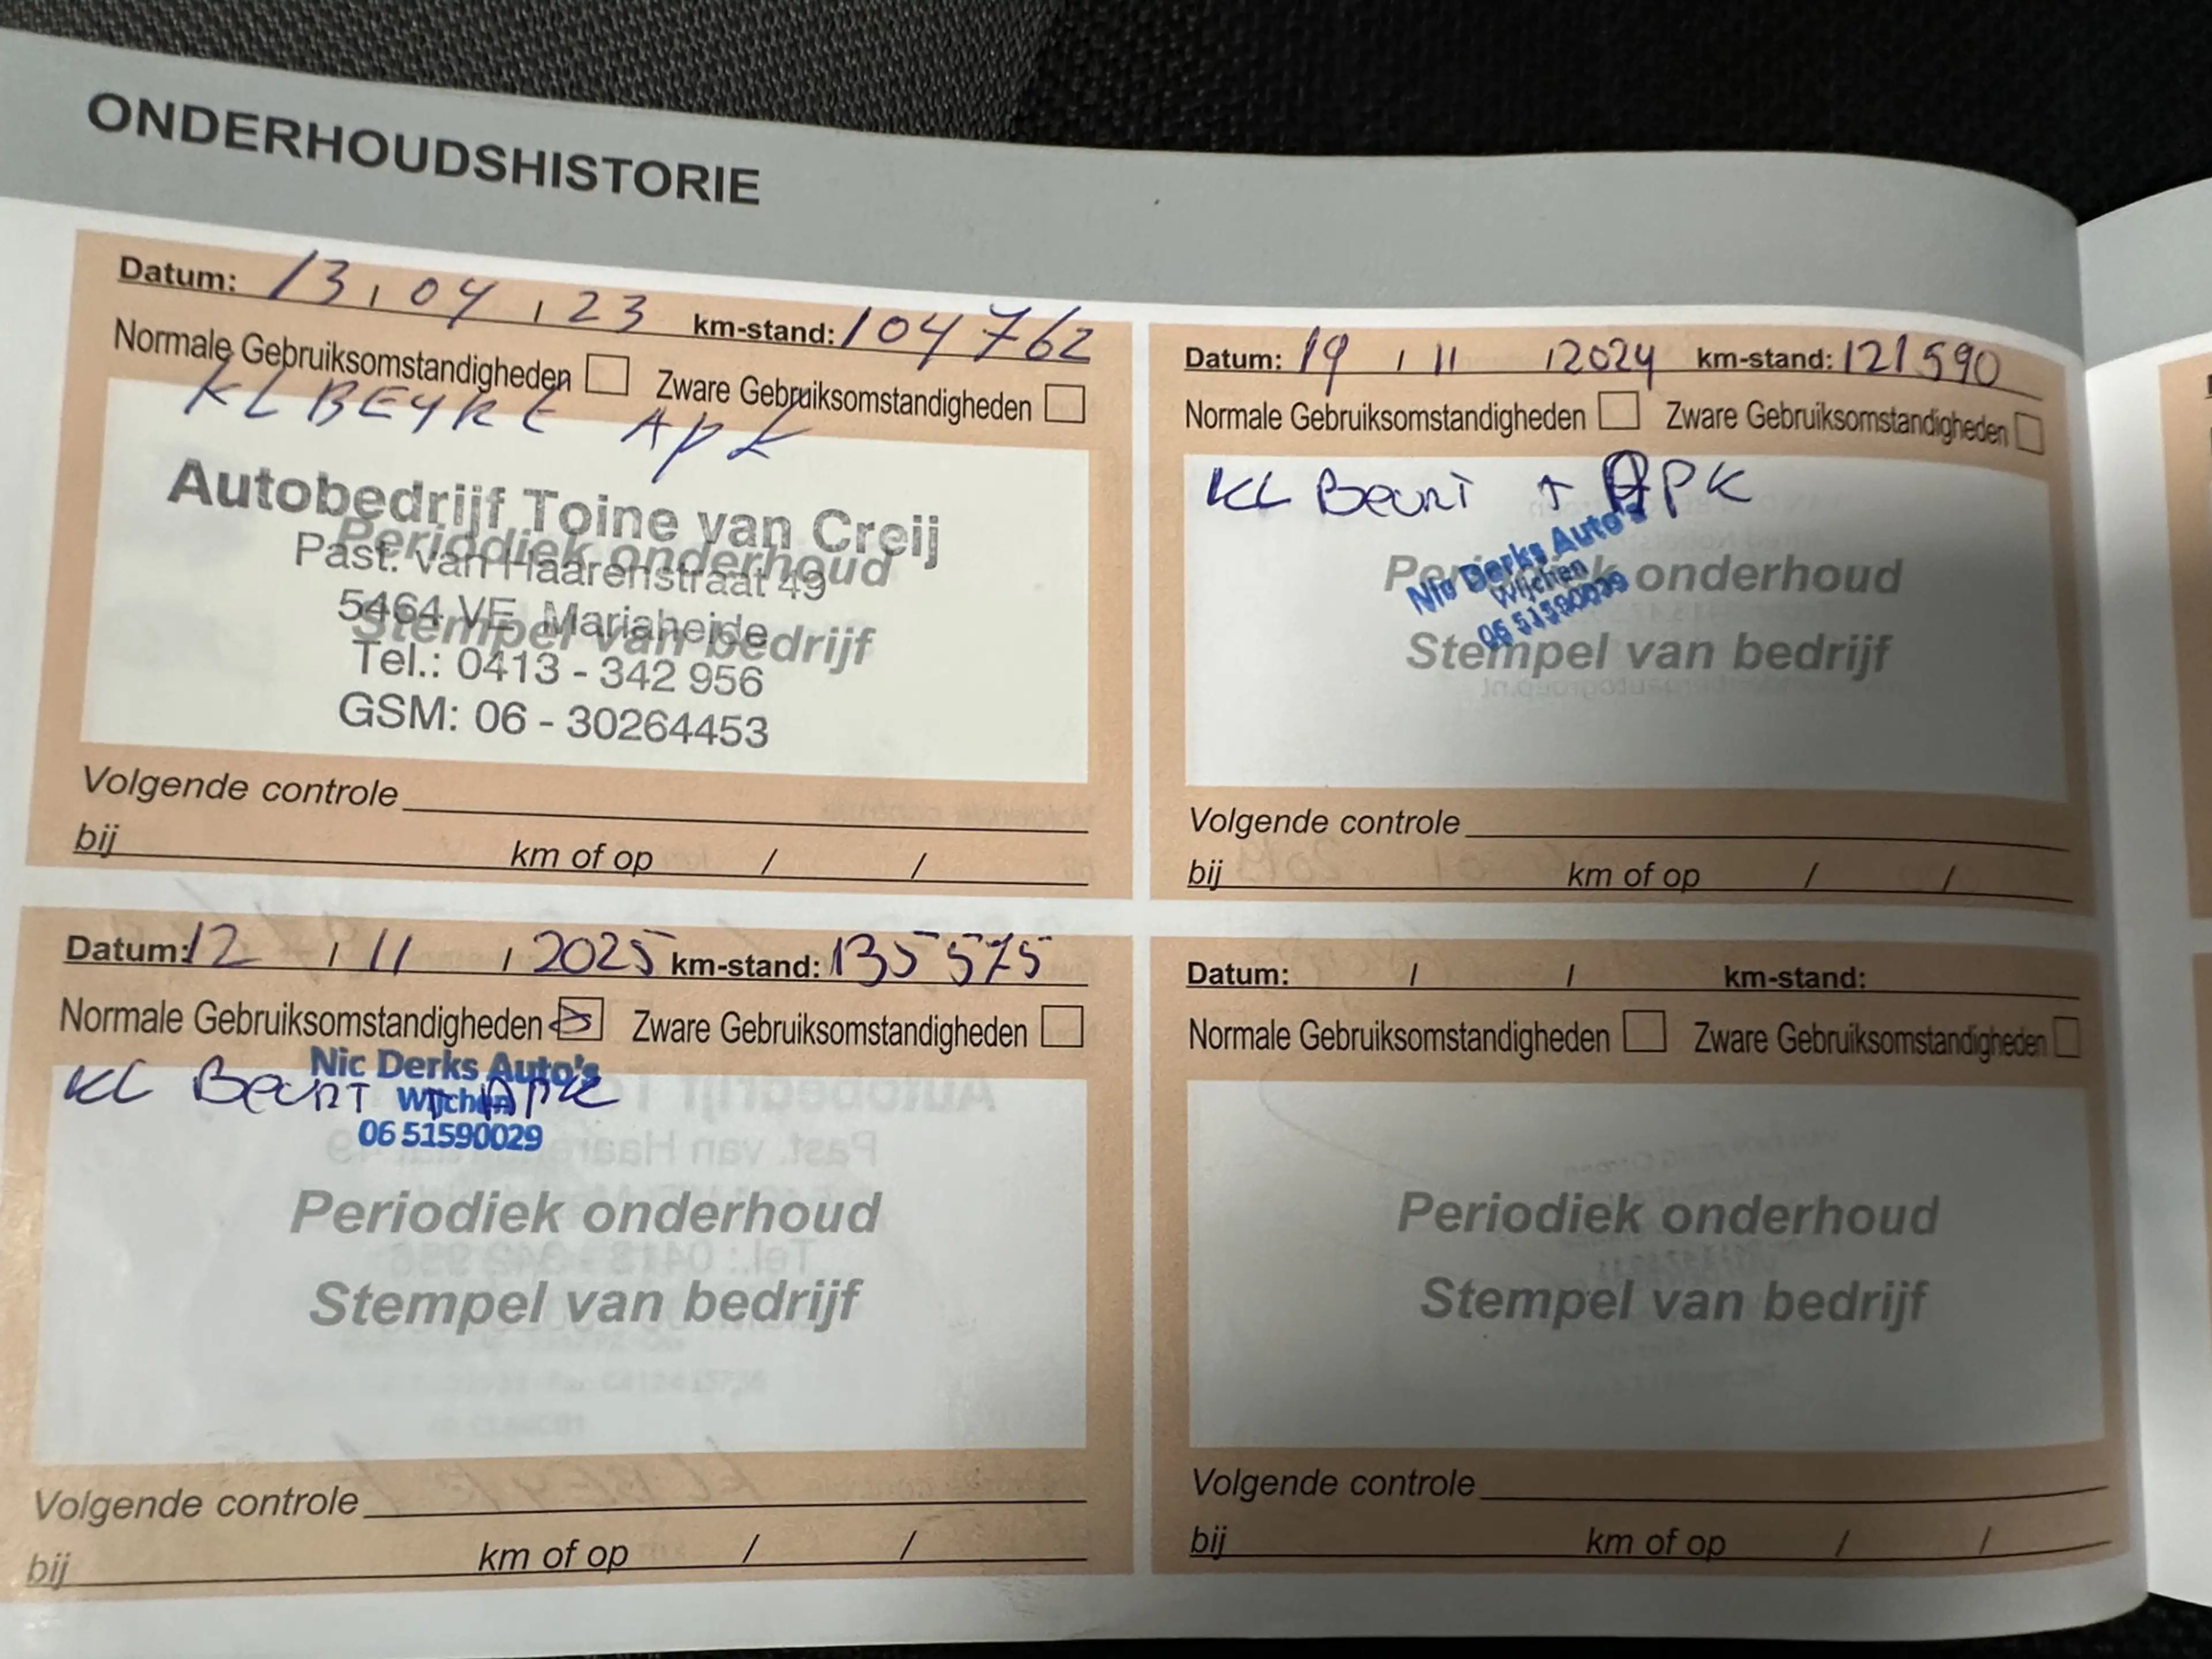 ONDERHOUDSHISTORIE
Datum: 13 / 04 / 23 km-stand: 104762
Normale Gebruiksomstandigheden Zware Gebruiksomstandigheden
KL BEYRT APK
Autobedrijf Toine van Creij
Periodiek onderhoud
Past. van Haarenstraat 49
5464 VE Mariaheide
Stempel van bedrijf
Tel.: 0413 - 342 956
GSM: 06 - 30264453
Volgende controle
bij km of op / /
Datum: 19 / 11 / 2024 km-stand: 121590
Normale Gebruiksomstandigheden Zware Gebruiksomstandigheden
KL Beurt + APK
Nic Derks Auto's
Wijchen
06 51590029
Periodiek onderhoud
Stempel van bedrijf
Volgende controle
bij km of op / /
Datum: 12 / 11 / 2025 km-stand: 135575
Normale Gebruiksomstandigheden Zware Gebruiksomstandigheden
Nic Derks Auto's
KL Beurt + APK
Wijchen
06 51590029
Periodiek onderhoud
Stempel van bedrijf
Volgende controle
bij km of op / /
Datum: / / km-stand:
Normale Gebruiksomstandigheden Zware Gebruiksomstandigheden
Periodiek onderhoud
Stempel van bedrijf
Volgende controle
bij km of op / /